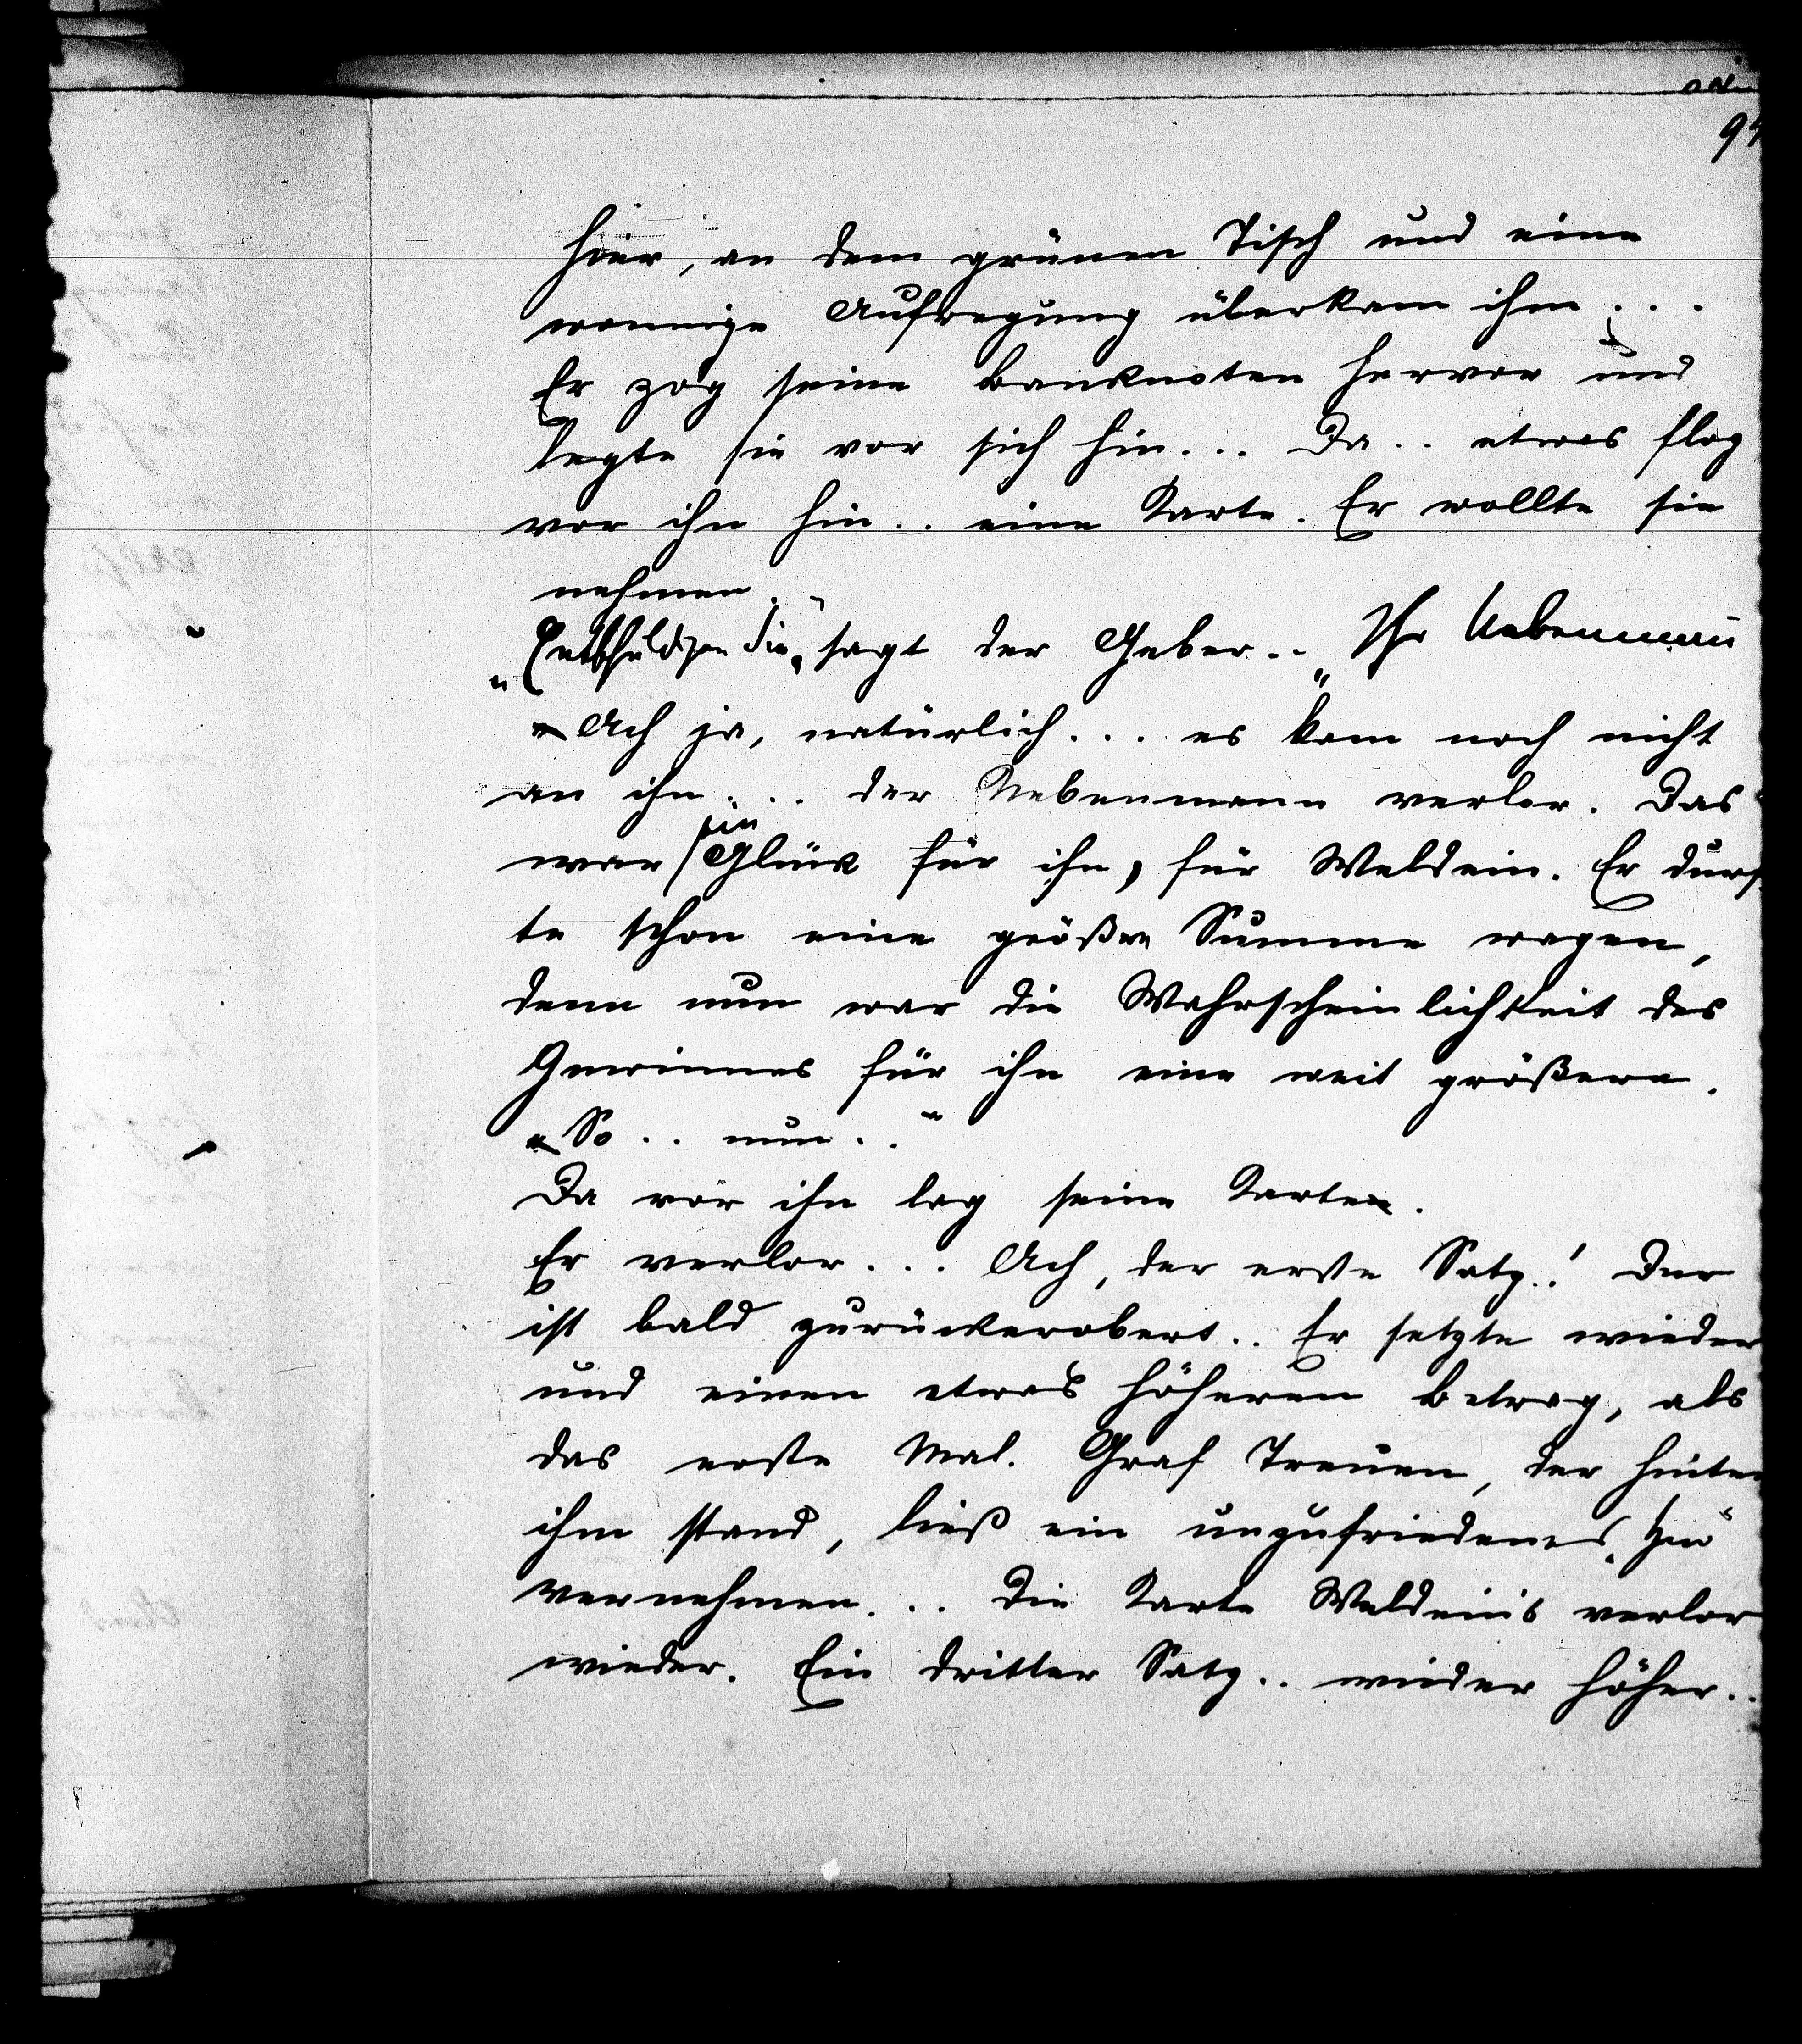 hier, an dem grünen Tisch und eine
wonnige Aufregung überkam ihm ...
Er zog seine Banknoten hervor und
legte sie vor sich hin... Da.. etwas flog
vor ihn hin.. eine Karte. Er wollte sie
nehmen.
„Entschuldigen Sie" sagt der Geber.. „Ihr Nebenmann
Ach ja, natürlich... es kam noch nicht
an ihn... der Nebenmann verlor. Das
war ein Glück für ihn, für Waldein. Er durf
te schon eine größere Summe wagen,
denn nun war die Wahrscheinlichkeit des
Gewinnes für ihn eine weit größere.
„So.. nun.."
Da vor ihn lag seine Karte.
Er verlor... Ach, der erste Satz..! Der
ist bald zurückerobert.. Er setzte wieder
und einen etwas höheren Betrag, als
das erste Mal. Graf Treuen, der hinter
ihm stand, ließ ein unzufriedenes „hm"
vernehmen... Die Karte Waldein's verlor
wieder. Ein dritter Satz.. wieder höher..